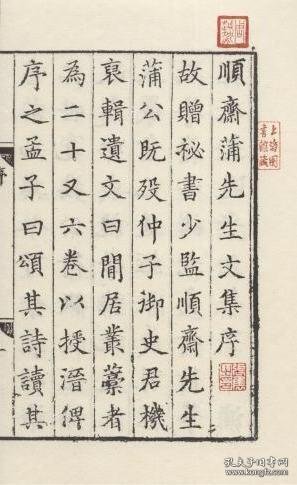 順齋蒲先生文集序
故贈祕書少監順齋先生
蒲公既歿仲子御史君機
裒輯遺文曰閒居叢藁者
為二十又六卷以授溍俾
序之孟子曰頌其詩讀其
序
上海圖
書館藏
孔夫子旧书网